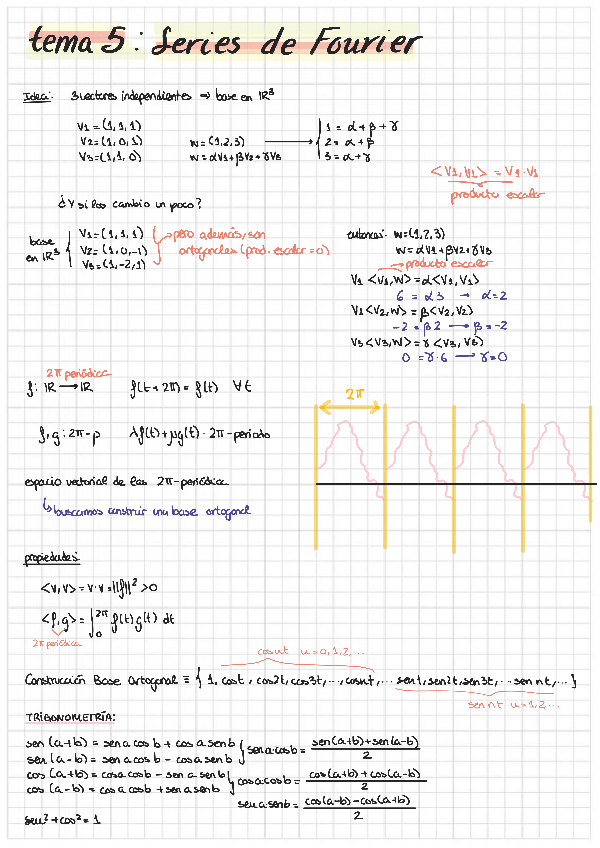 tema 5: Series de Fourier
Idea: 3 vectores independientes → base en IR³
V1 = (1, 1, 1)
V2 = (1, 0, 1) w = (1, 2, 3)
V3 = (1, 1, 0) w = αV1 + βV2 + γV3
1 = α + β + γ
2 = α + β
3 = α + γ
<V1, V1> = V1 · V1
producto escalar
¿Y si los cambio un poco?
base en IR³
V1 = (1, 1, 1)
V2 = (1, 0, -1)
V3 = (1, -2, 1)
pero además, son
ortogonales (prod. escalar = 0)
entonces: w = (1, 2, 3)
w = αV1 + βV2 + γV3
producto escalar
V1 <V1, W> = α <V1, V1>
6 = α3 → α = 2
V1 <V2, W> = β <V2, V2>
-2 = β2 → β = -2
V3 <V3, W> = γ <V3, V3>
0 = γ · 6 → γ = 0
2π periódica
f: IR → IR f(t + 2π) = f(t) ∀ t
2π
f, g : 2π-p λf(t) + μg(t) · 2π-periodo
espacio vectorial de las 2π-periódica
buscamos construir una base ortogonal
propiedades:
<v, v> = v · v = ||f||² > 0
<f, g> = ∫₀^2π f(t) g(t) dt
2π periódica
cos nt n = 0, 1, 2, ...
Construcción Base Ortogonal ≡ { 1, cost, cos2t, cos3t, ..., cosnt, ... sen t, sen2t, sen3t, ... sen nt, ... }
sen nt n = 1, 2 ...
TRIGONOMETRÍA:
sen (a+b) = sen a cos b + cos a sen b
sen (a-b) = sen a cos b - cos a sen b
sen a cos b = sen(a+b) + sen(a-b) / 2
cos (a+b) = cos a cos b - sen a sen b
cos (a-b) = cos a cos b + sen a sen b
cos a cos b = cos(a+b) + cos(a-b) / 2
sen a · sen b = cos(a-b) - cos(a+b) / 2
sen² + cos² = 1